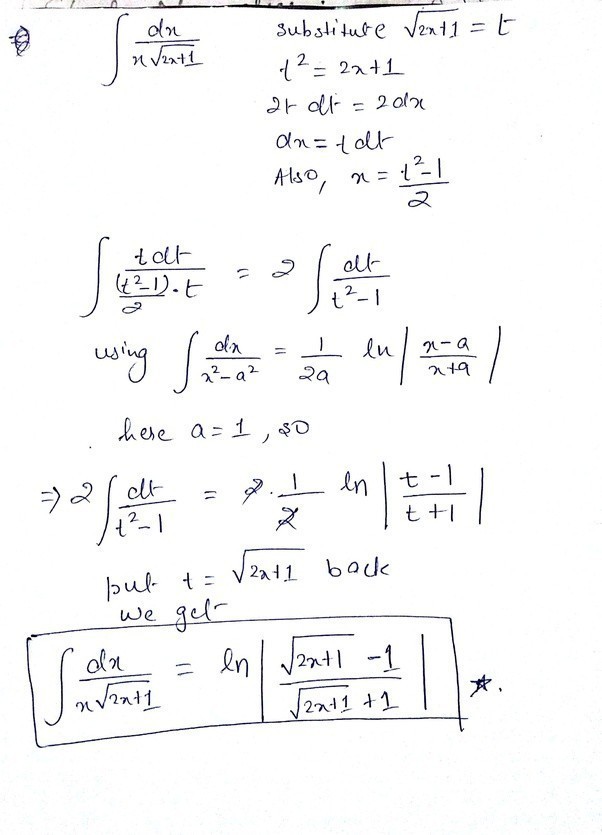 ∫ dx / x√2x+1    substitute √2x+1 = t
t² = 2x+1
2t dt = 2dx
dx = t dt
Also, x = t²-1 / 2
∫ t dt / (t²-1)/2 · t = 2 ∫ dt / t²-1
using ∫ dx / x²-a² = 1/2a ln | x-a / x+a |
here a = 1, so
⇒ 2 ∫ dt / t²-1 = 2 · 1/2 ln | t-1 / t+1 |
put t = √2x+1 back
we get
∫ dx / x√2x+1 = ln | √2x+1 -1 / √2x+1 +1 |